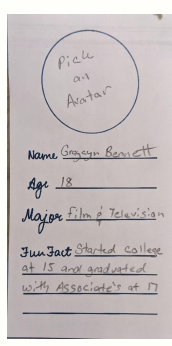 Pick
an
Avatar
Name Gracyn Bennett
Age 18
Major Film & Television
Fun Fact Started college
at 15 and graduated
with Associate's at 17